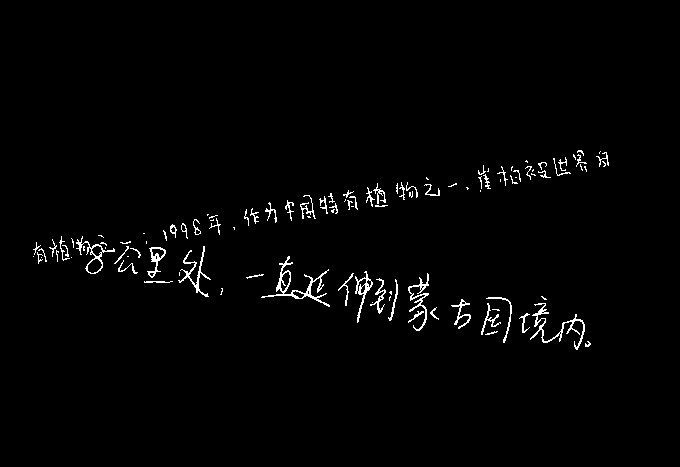 有植物之一：1998年，作为中国特有植物之一，崖柏被世界自
8公里处，一直延伸到蒙古国境内。